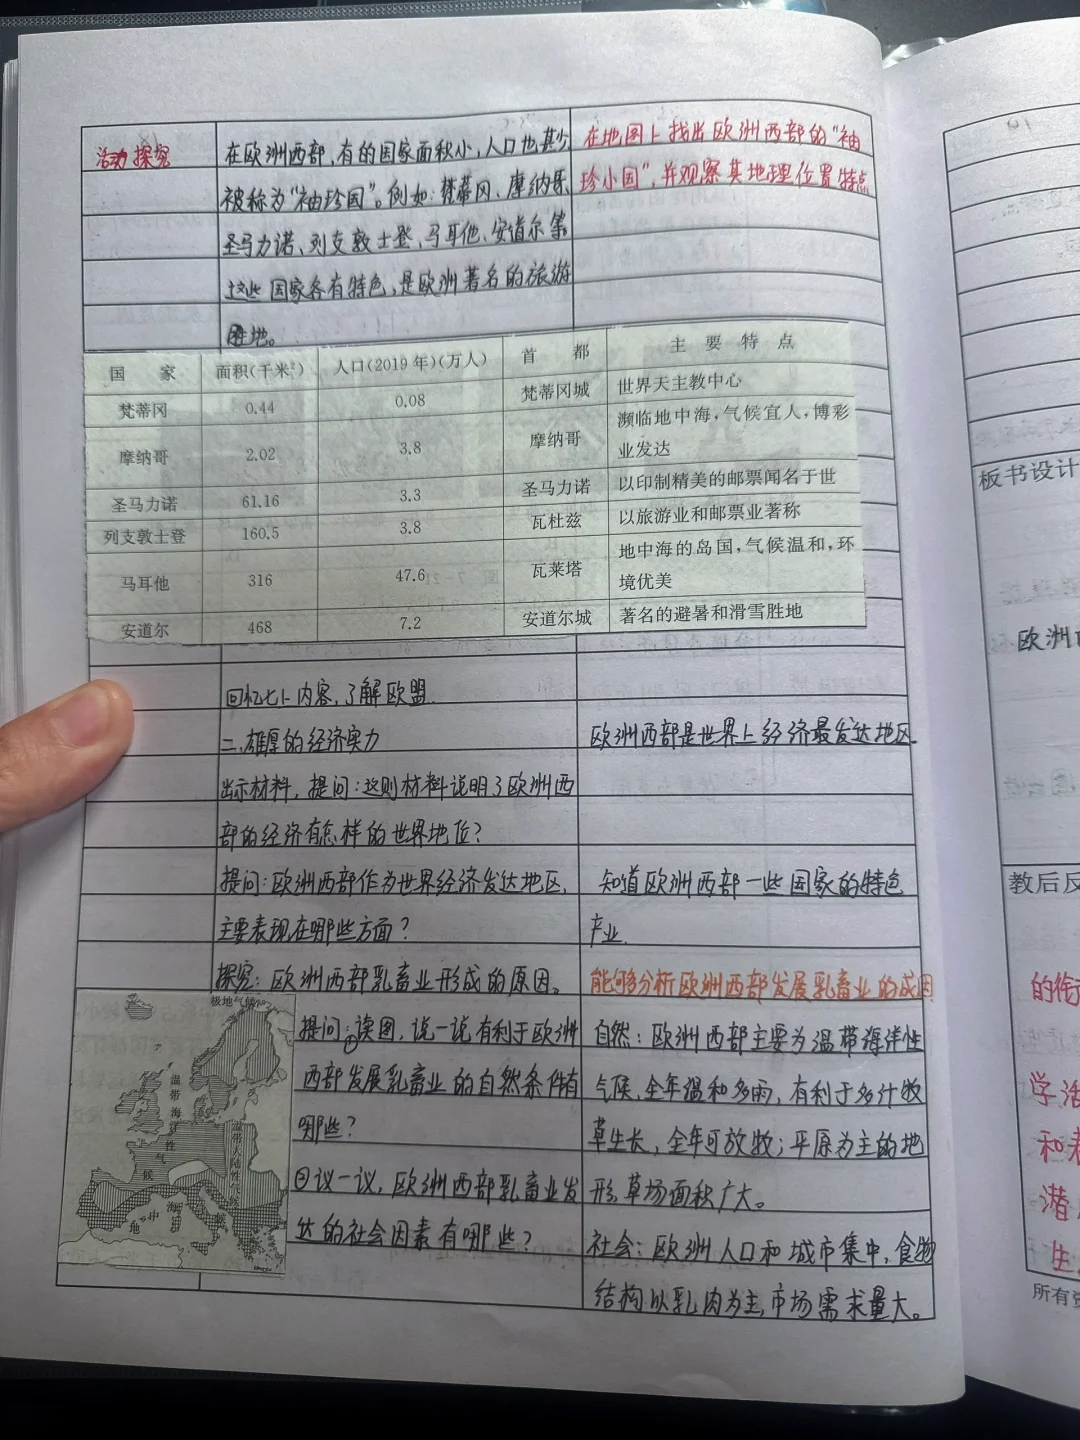 活动探究
在欧洲西部,有的国家面积小,人口也甚少
被称为“袖珍国”。例如:梵蒂冈、摩纳哥
圣马力诺、列支敦士登、马耳他、安道尔等
这些国家各有特色,是欧洲著名的旅游
胜地。
在地图上找出欧洲西部的“袖
珍小国”,并观察其地理位置特点
国 家 面积(千米²) 人口(2019年)(万人) 首 都 主 要 特 点
梵蒂冈 0.44 0.08 梵蒂冈城 世界天主教中心
摩纳哥 2.02 3.8 摩纳哥 濒临地中海,气候宜人,博彩
业发达
圣马力诺 61.16 3.3 圣马力诺 以印制精美的邮票闻名于世
列支敦士登 160.5 3.8 瓦杜兹 以旅游业和邮票业著称
马耳他 316 47.6 瓦莱塔 地中海的岛国,气候温和,环
境优美
安道尔 468 7.2 安道尔城 著名的避暑和滑雪胜地
回忆七上内容,了解欧盟.
二、雄厚的经济实力
出示材料,提问:这则材料说明了欧洲西
部的经济有怎样的世界地位?
提问:欧洲西部作为世界经济发达地区,
主要表现在哪些方面?
探究:欧洲西部乳畜业形成的原因。
提问:①读图,说一说有利于欧洲
西部发展乳畜业的自然条件有
哪些?
②议一议,欧洲西部乳畜业发
达的社会因素有哪些?
极地气候
温带海洋性气候
温带大陆性气候
地中海气候
欧洲西部是世界上经济最发达地区.
知道欧洲西部一些国家的特色
产业.
能够分析欧洲西部发展乳畜业的成因
自然:欧洲西部主要为温带海洋性
气候,全年温和多雨,有利于多汁牧
草生长,全年可放牧;平原为主的地
形,草场面积广大。
社会:欧洲人口和城市集中,食物
结构以乳肉为主,市场需求量大。
板书设计
欧洲
教后反
的衔
学活
和
潜
生
所有